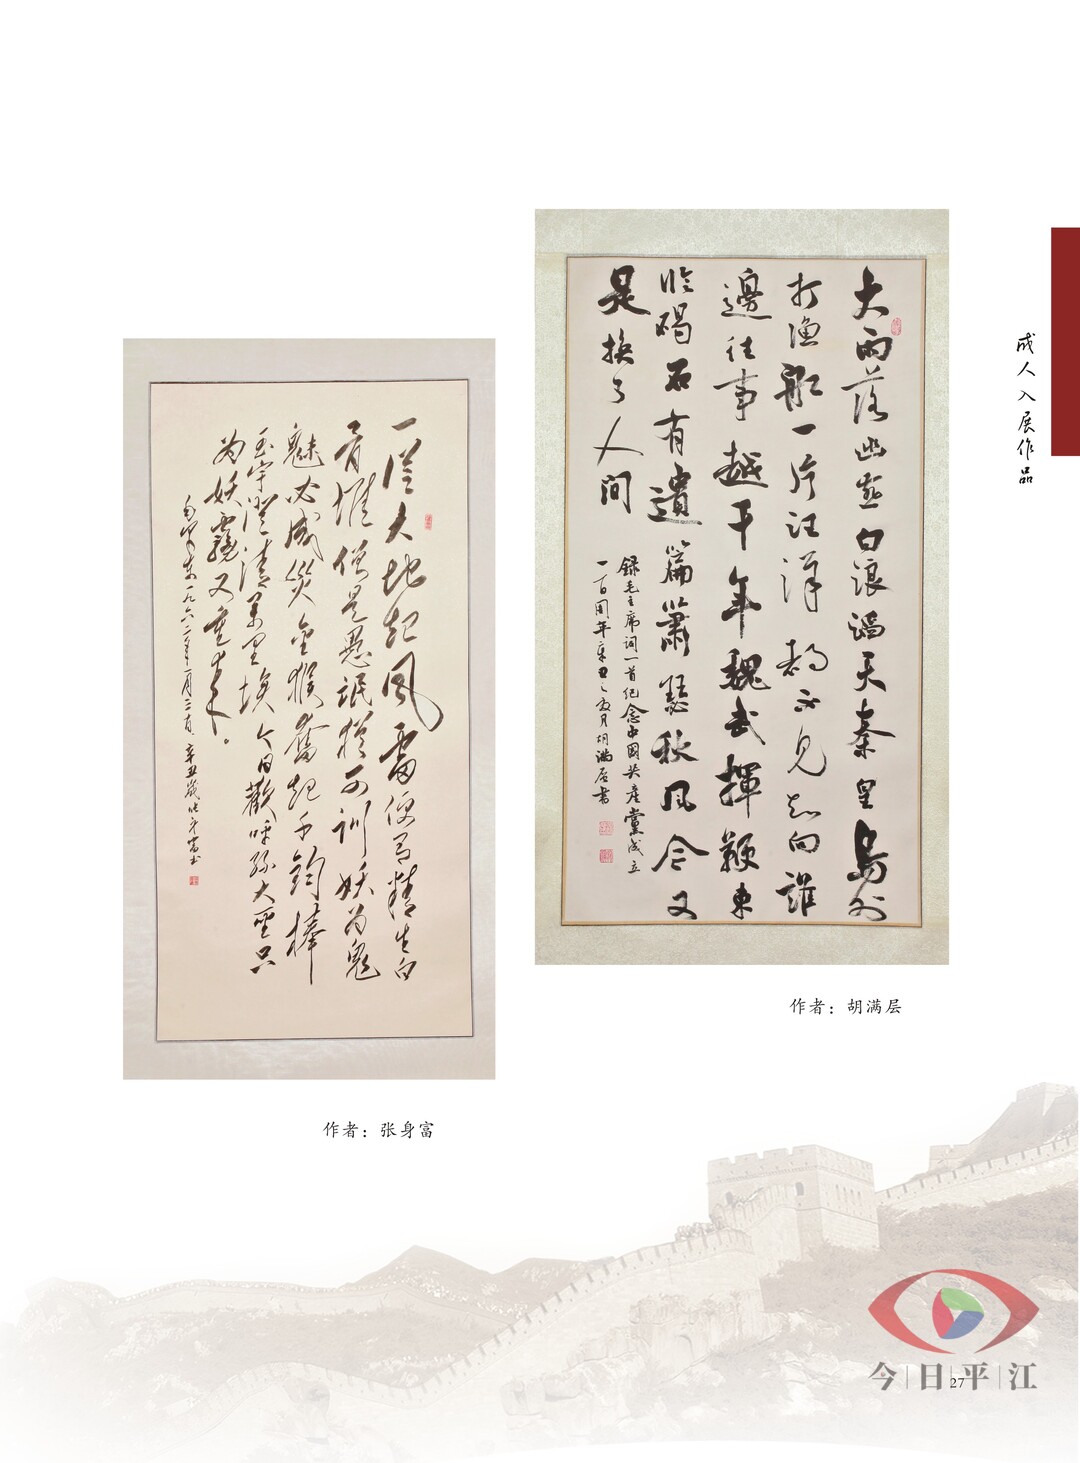 成人入展作品
大雨落幽燕白浪滔天秦皇島外
打渔船一片汪洋都不见知向誰
邊往事越千年魏武揮鞭東
临碣石有遺篇蕭瑟秋风今又
是换了人间
録毛主席词一首纪念中國共產黨成立
一百周年辛丑之夏月胡满层書
作者：胡满层
一從大地起风雷便有精生白
骨堆僧是愚氓猶可训妖为鬼
魅必成災金猴奮起千鈞棒
玉宇澄清万里埃今日歡呼孫大聖只
为妖霧又重来。
毛泽东一九六 年 辛丑歲张身富书
作者：张身富
今日平江
27